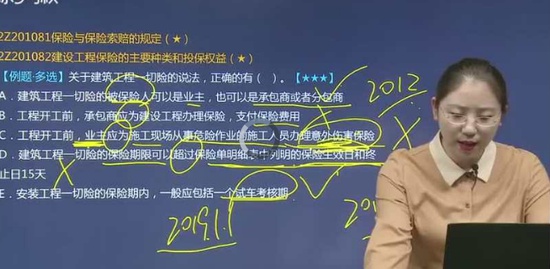 2Z201081保险与保险索赔的规定（★）
2Z201082建设工程保险的主要种类和投保权益（★）
【例题·多选】关于建筑工程一切险的说法，正确的有（ ）。【★★★】
A．建筑工程一切险的被保险人可以是业主，也可以是承包商或者分包商
B．工程开工前，承包商应为建设工程办理保险，支付保险费用
C．工程开工前，业主应为施工现场从事危险作业的施工人员办理意外伤害保险
D．建筑工程一切险的保险期限可以超过保险单明细表中列明的保险生效日和终
止日15天
E．安装工程一切险的保险期内，一般应包括一个试车考核期
2012
2019.1.1